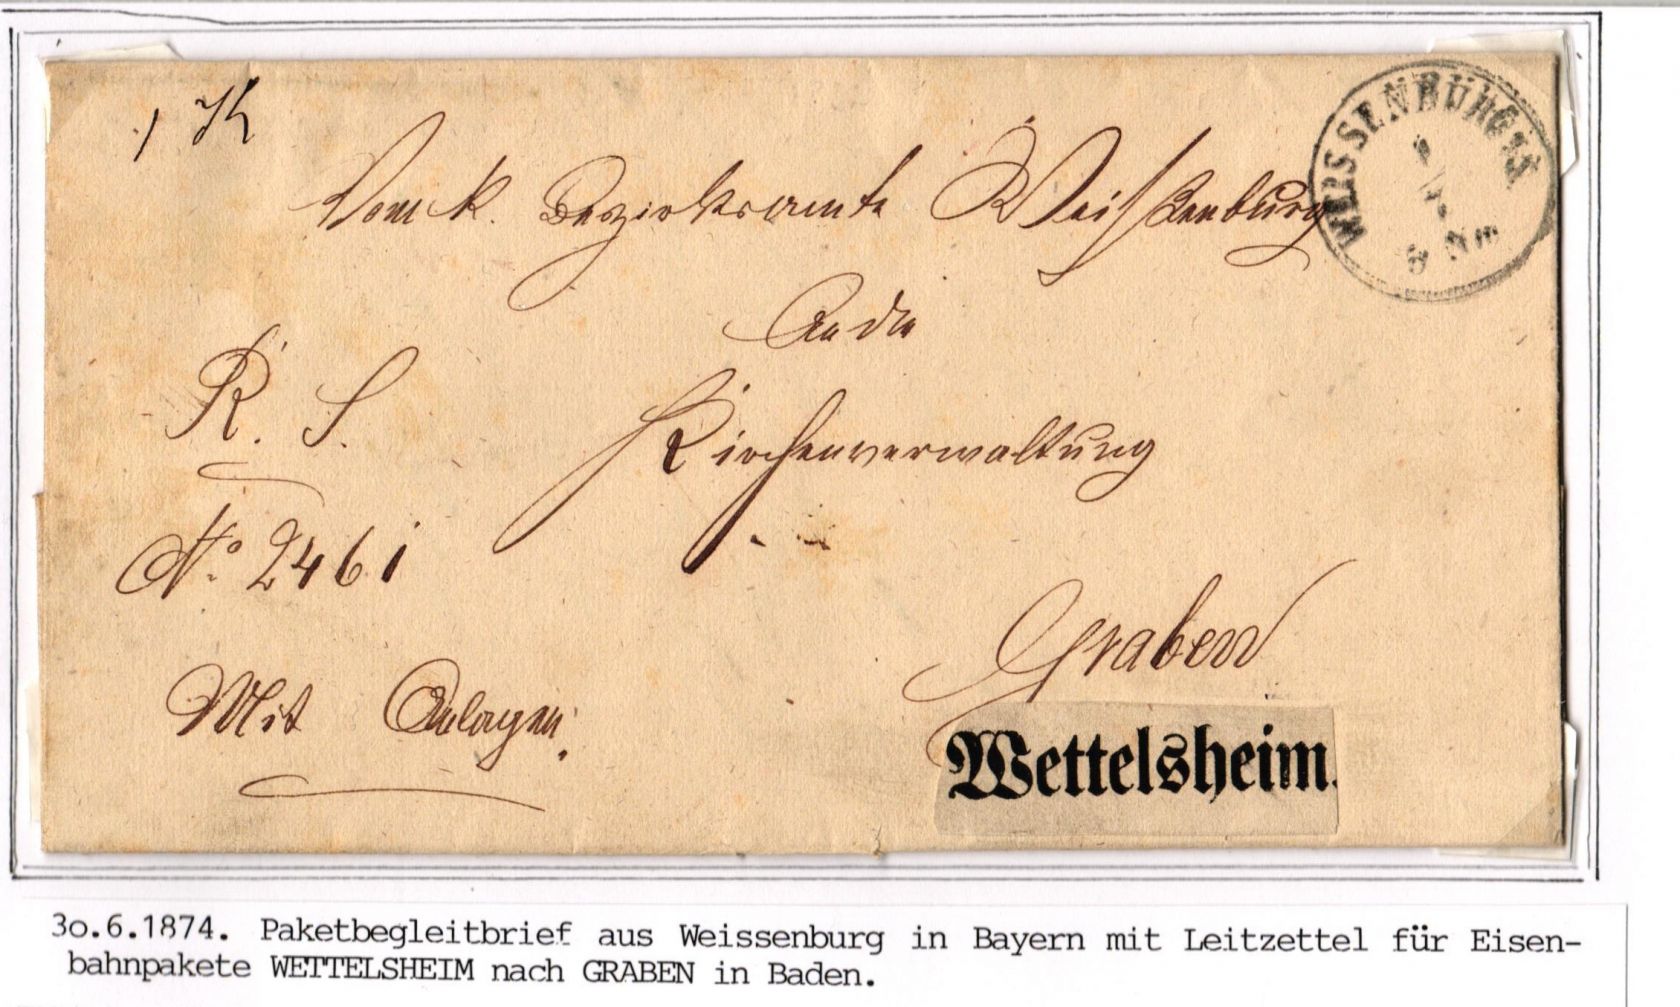 Vom k. Bezirksamte Weißenburg
An die
R. S.
Kirchenverwaltung
No. 2461
Graben
Mit Anlagen.
Wettelsheim.
WEISSENBURG
3o.6.1874. Paketbegleitbrief aus Weissenburg in Bayern mit Leitzettel für Eisen-
bahnpakete WETTELSHEIM nach GRABEN in Baden.